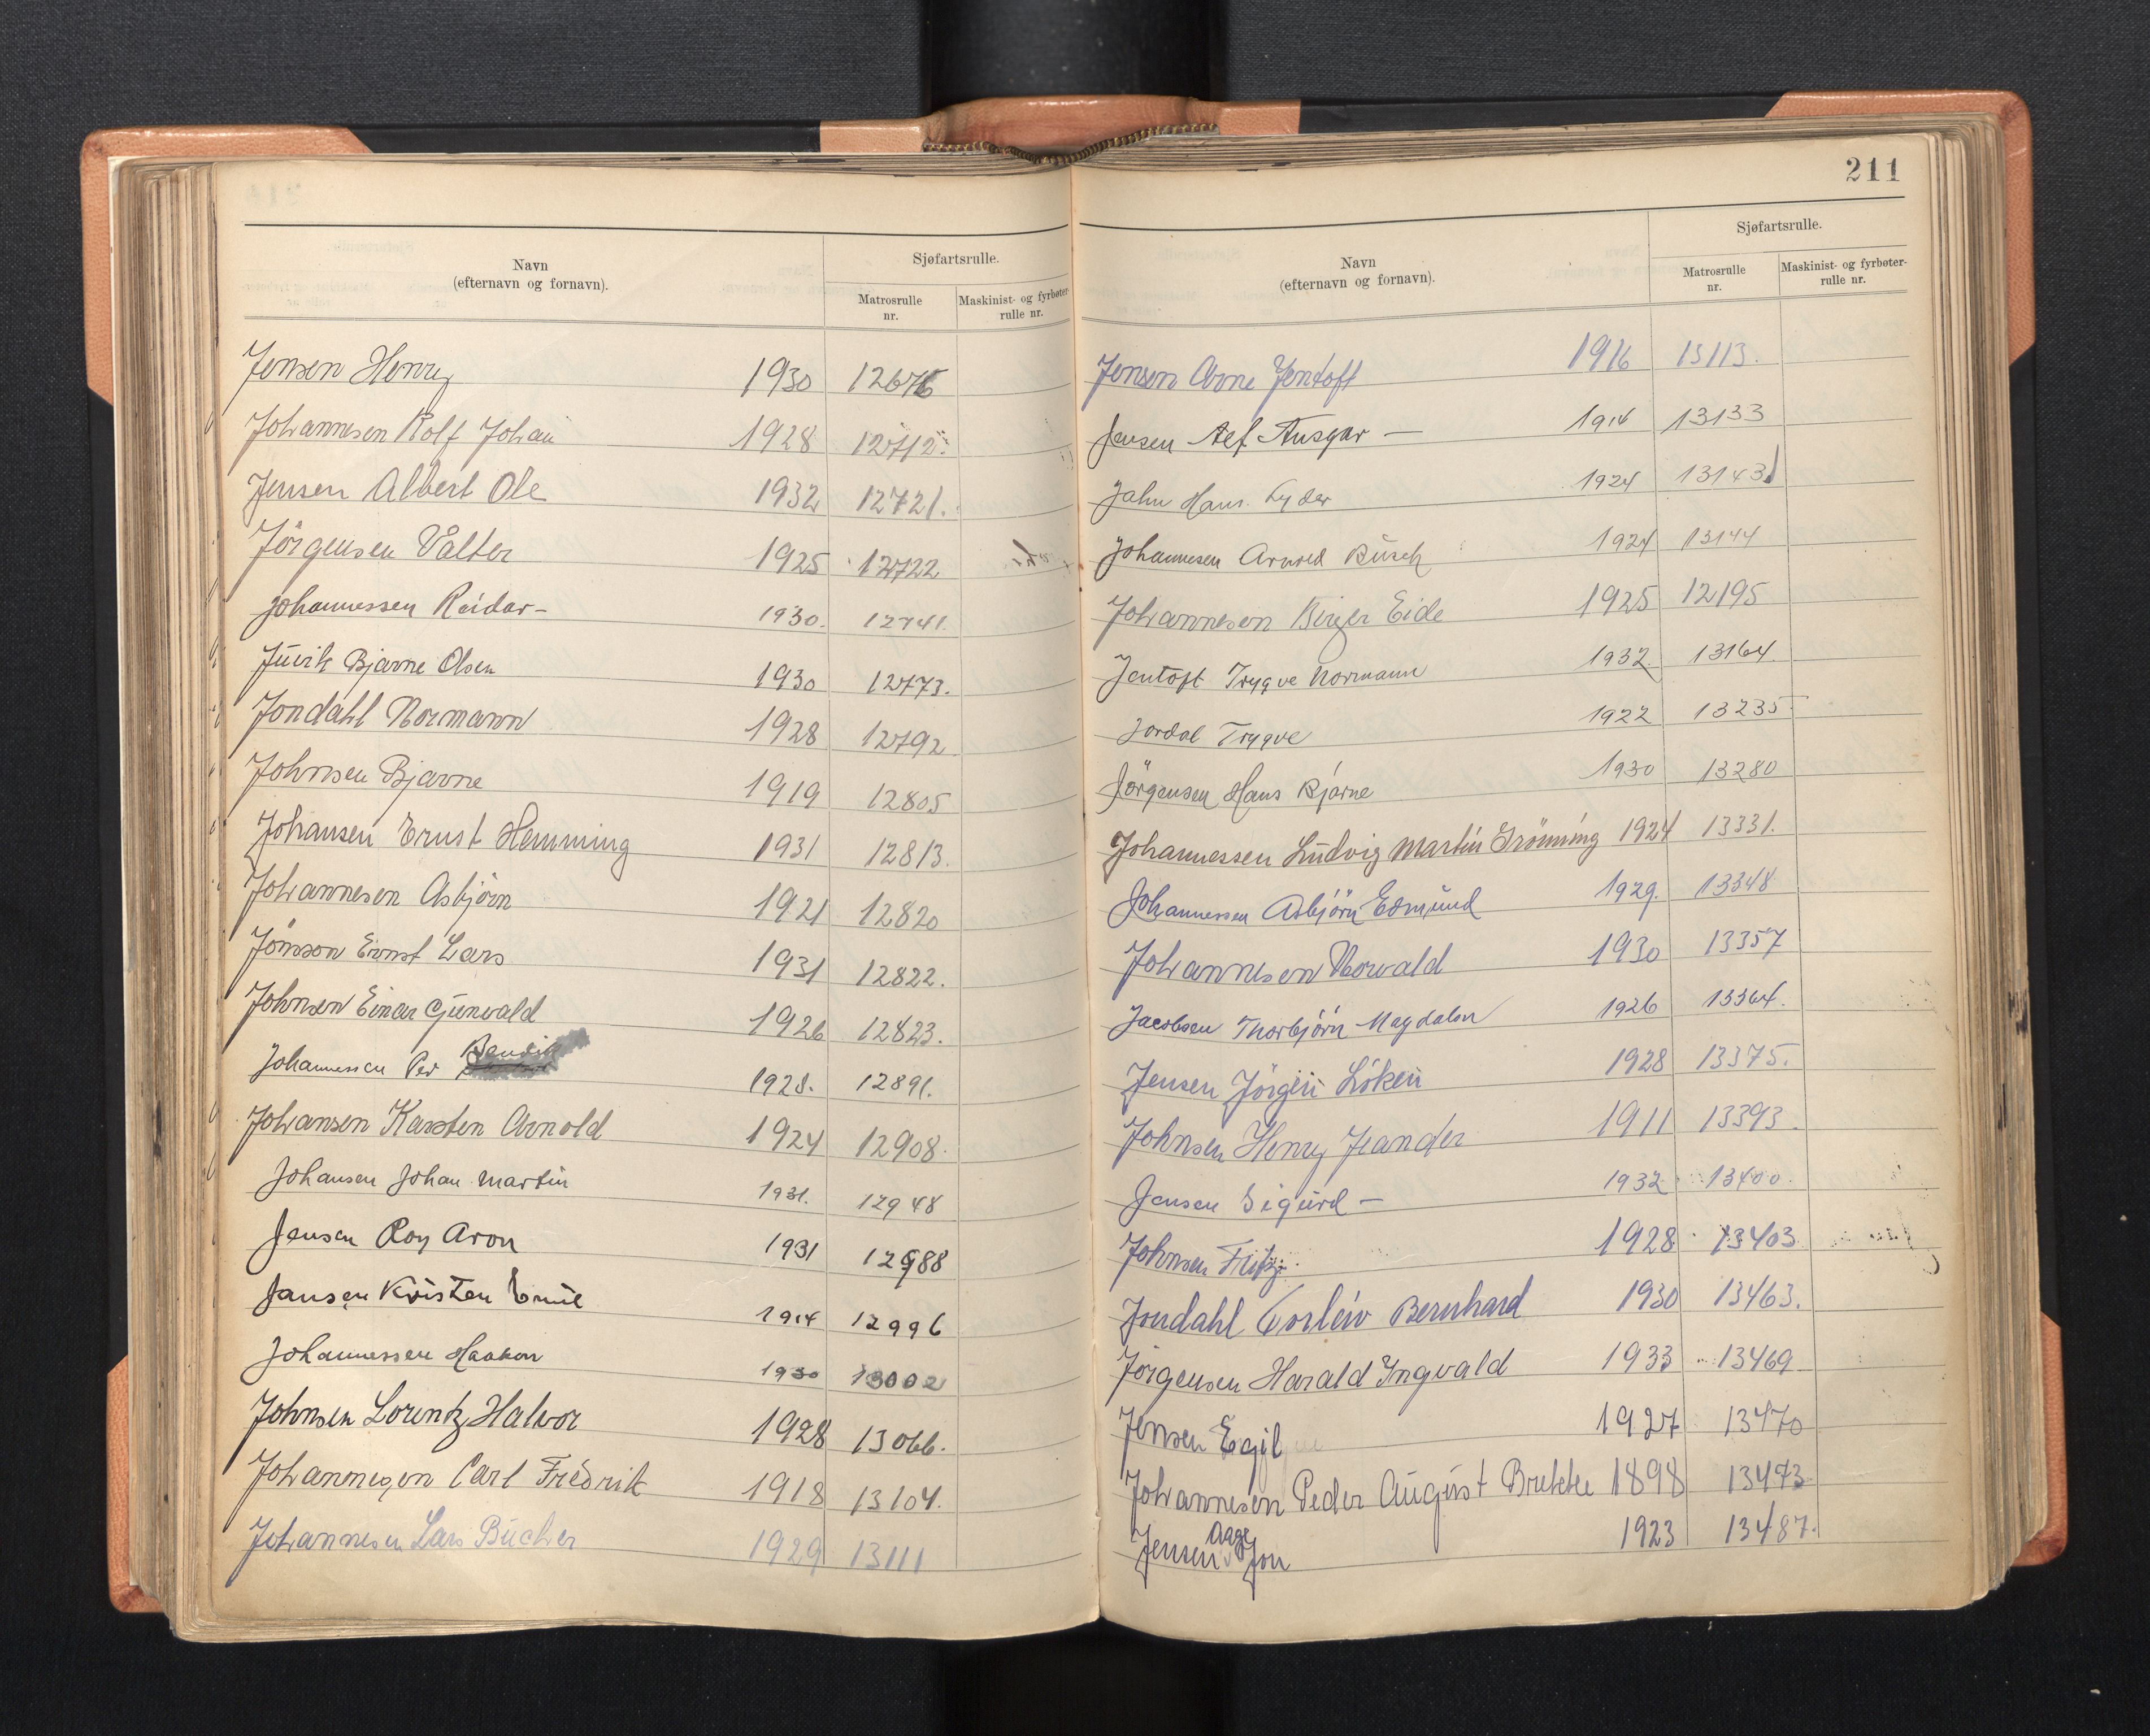 Navn
(efternavn og fornavn).
Sjøfartsrulle.
Matrosrulle
nr.
Maskinist- og fyrbøter-
rulle nr.
Jensen Henry 1930 12676
Johannesen Rolf Johan 1928 12712.
Jensen Albert Ole 1932 12721.
Jörgensen Valter 1925 12722
Johannessen Reidar- 1930. 12741.
Juvik Bjarne Olsen 1930 12773.
Jondahl Normann 1928 12792.
Johnsen Bjarne 1919 12805
Johansen Ernst Hemming 1931 12813.
Johannesen Asbjörn 1921 12820
Jönsson Ernst Lars 1931 12822.
Johnsen Einar Gunvald 1926 12823.
Bendik
Johannessen Per 1928. 12891.
Johansen Karsten Arnold 1924 12908.
Johansen Johan Martin 1931. 12948
Jensen Roy Aron 1931 12988
Jansen Kristen Emil 1914 12996
Johannessen Haakon 1930 13002
Johnsen Lorentz Halvor 1928 13066.
Johannesen Carl Fredrik 1918 13104.
Johannesen Lars Bucher 1929 13111
211
Navn
(efternavn og fornavn).
Sjøfartsrulle.
Matrosrulle
nr.
Maskinist- og fyrbøter-
rulle nr.
Jensen Arne Jentoft 1916 13113.
Jensen Alf Ansgar — 1914 13133
Jahn Hans. Lyder 1924 13143
Johannesen Arnold Busch 1924 13144
Johannesen Birger Eide 1925 12195
Jentoft Trygve Normann 1932. 13164.
Jordal Trygve 1922 13235
Jörgensen Hans Bjarne 1930 13280
Johannessen Ludvig Martin Grönning 1924 13331.
Johannessen Asbjörn Edmund 1929. 13348
Johannesen Norvald 1930 13357
Jacobsen Thorbjörn Magdalon 1926 13364.
Jensen Jörgen Löken 1928 13375.
Johnsen Henry Jeander 1911 13393.
Jensen Sigurd — 1932 13400.
Johnsen Fritz 1928 13403
Jondahl Torleiv Bernhard 1930 13463.
Jörgensen Harald Ingvald 1933 13469
Jensen Egil 1927 13470
Johannesen Peder August Brekke 1898 13473
Aage
Jensen Jon 1923 13487.